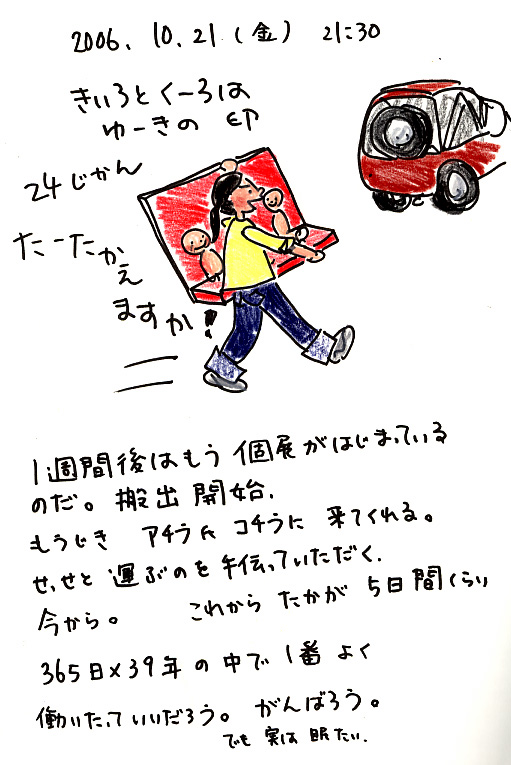 2006. 10. 21 (金) 21:30
きいろとくーろは
ゆーきの 印
24じかん
たーたか
え
ますか!
1週間後はもう 個展がはじまっている
のだ。搬出 開始.
もうじき アチラが コチラに 来てくれる。
せっせと 運ぶのを 手伝っていただく.
今から。 これから たかが 5日間くらい
365日×39年の中で 1番 よく
働いたっていいだろう。がんばろう。
でも 実は 眠たい.